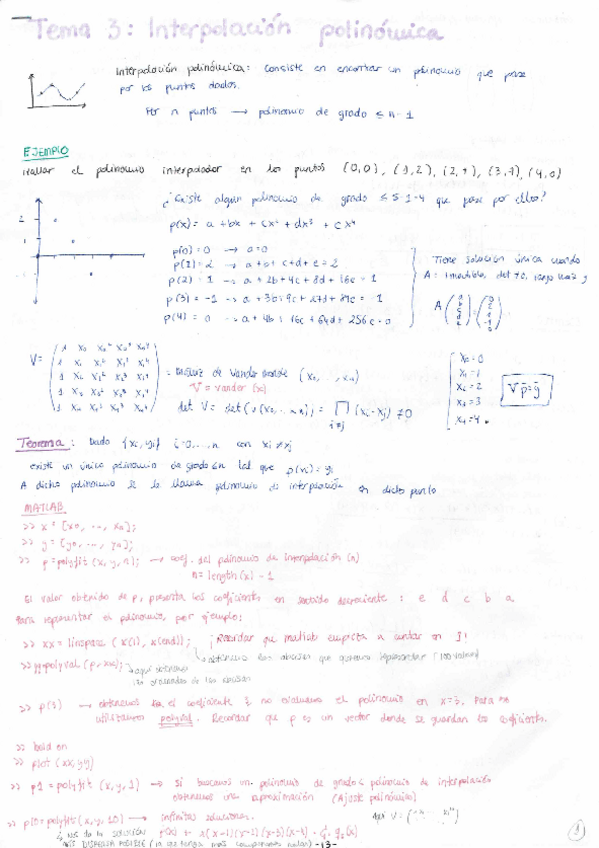 Tema 3: Interpolación polinómica
Interpolación polinómica: consiste en encontrar un polinomio que pase
por los puntos dados.
Por n puntos → polinomio de grado ≤ n-1
EJEMPLO
Hallar el polinomio interpolador en los puntos (0,0), (1,2), (2,1), (3,-1), (4,0)
¿Existe algún polinomio de grado ≤ 5-1=4 que pase por ellos?
p(x) = a + bx + cx² + dx³ + ex⁴
p(0) = 0 → a = 0
p(1) = 2 → a+b+c+d+e = 2
p(2) = 1 → a+2b+4c+8d+16e = 1
p(3) = -1 → a+3b+9c+27d+81e = 1
p(4) = 0 → a+4b+16c+64d+256e = 0
Tiene solución única cuando
A
V =
1 x₀ x₀² x₀³ x₀⁴
1 x₁ x₁² x₁³ x₁⁴
= Matriz de Vandermonde (x₀, ..., xₙ)
V = vander (x)
det V = det (V(x₀ ... xₙ)) = ∏ (xᵢ-xⱼ) ≠ 0
x₀ = 0
x₁ = 1
x₂ = 2
x₃ = 3
x₄ = 4
V p̄ = ȳ
Teorema: Dado {xᵢ, yᵢ} i=0,...,n con xᵢ≠xⱼ
existe un único polinomio de grado ≤ n tal que p(xᵢ) = yᵢ
A dicho polinomio se le llama polinomio de interpolación en dicho punto
MATLAB
>> x = [x₀, ..., xₙ];
>> y = [y₀, ..., yₙ];
>> p = polyfit (x, y, n); → coef. del polinomio de interpolación (n)
n = length(x) - 1
El valor obtenido de p, presenta los coeficientes en sentido decreciente: e d c b a
Para representar el polinomio, por ejemplo:
>> xx = linspace (x(1), x(end)); ¡Recordar que matlab empieza a contar en 1!
obtenemos las abscisas que queremos representar (100 valores)
>> yy=polyval (p, xx); → aquí obtenemos
las ordenadas de las abscisas
>> p(3) → obtenemos el coeficiente no evaluamos el polinomio en x=3. Para
utilizamos polyval. Recordar que p es un vector donde se guardan los coeficientes.
>> hold on
>> plot (xx, yy)
>> p1 = polyfit (x, y, 1) → Si buscamos un polinomio de grado < polinomio de interpolación
obtenemos una aproximación (Ajuste polinómico)
>> p10 = polyfit (x, y, 10) → infinitas soluciones.
nos da la solución
-13-